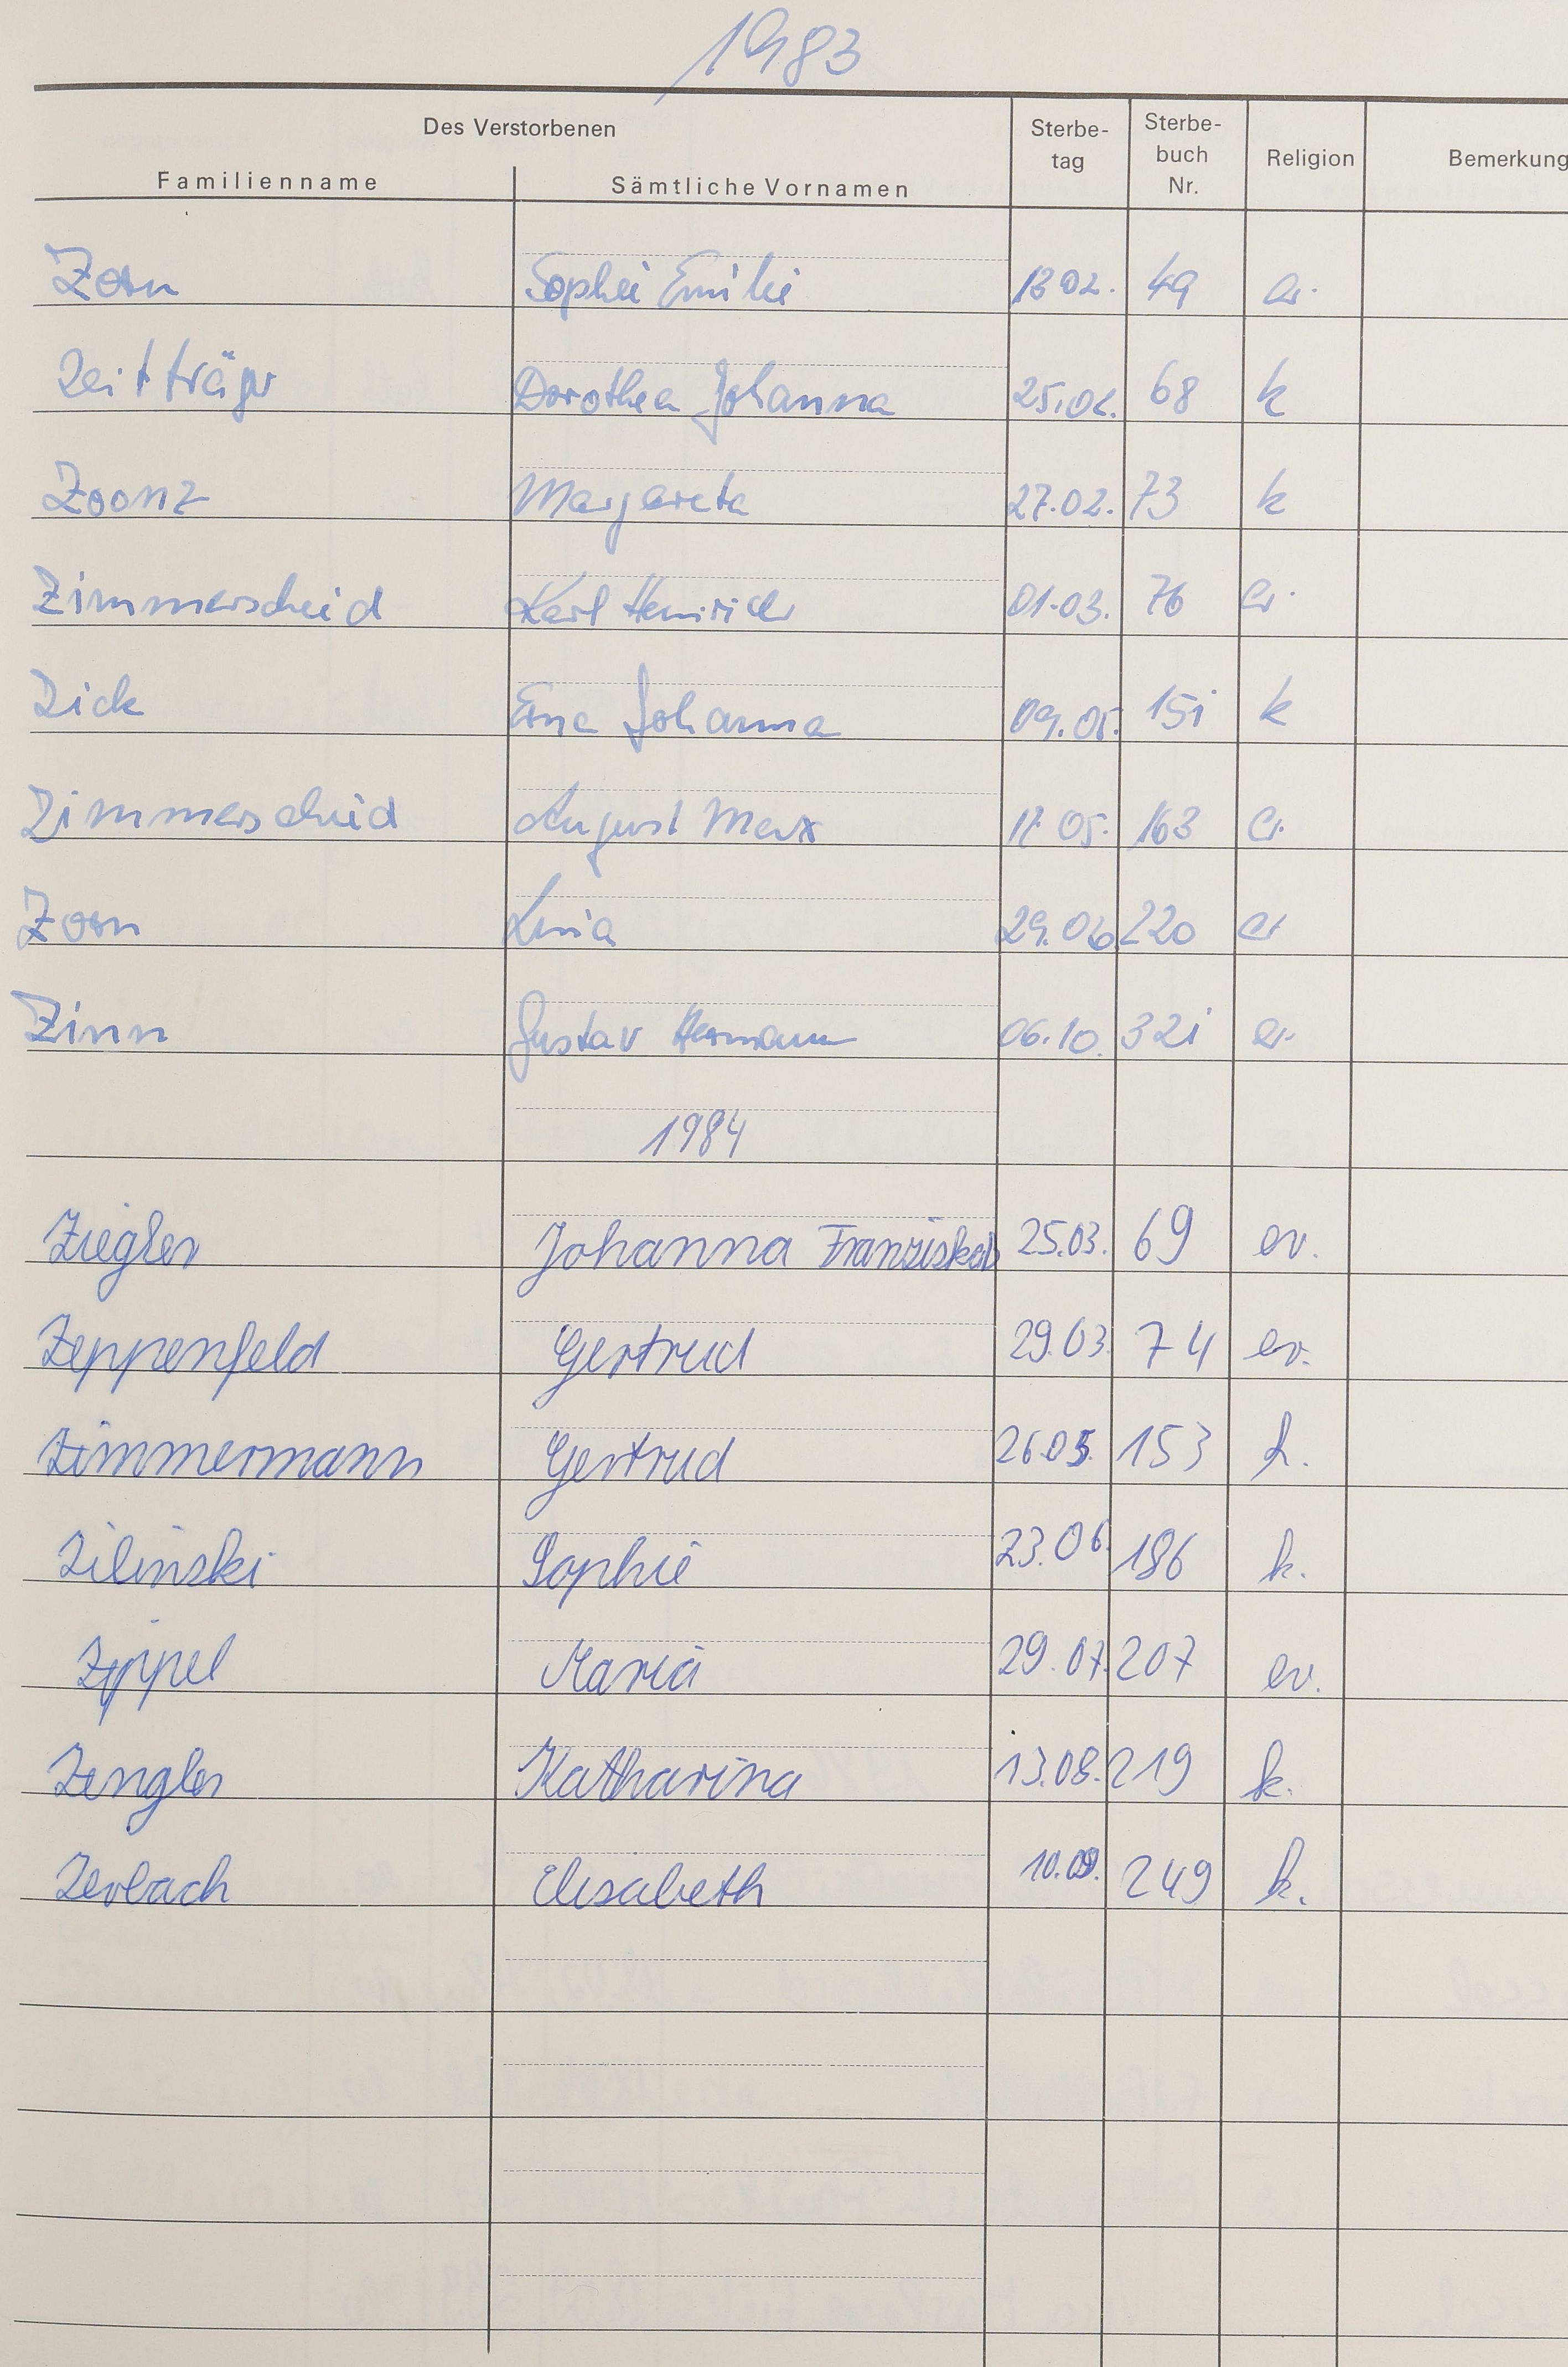 1983
Des Verstorbenen
Familienname Sämtliche Vornamen Sterbe-tag Sterbe-buch Nr. Religion Bemerkung
Zorn Sophie Emilie 13 02. 49 ev.
Zeitträger Dorothea Johanna 25.02. 68 k
Zoonz Margareta 27.02. 73 k
Zimmerscheid Karl Heinrich 01.03. 76 ev.
Zick Erna Johanna 09.05. 151 k
Zimmerscheid August Max 05. 163 ev.
Zorn Luia 29.06 220 ev
Zinn Gustav Hermann 06.10. 321 ev.
1984
Ziegler Johanna Franziska 25.03. 69 ev.
Zeppenfeld Gertrud 29.03. 74 ev.
Zimmermann Gertrud 26.05. 153 k.
Zilinski Sophie 23.06. 186 k.
Zippel Maria 29.07. 207 ev.
Zengler Katharina 13.08. 219 k.
Zerbach Elisabeth 10.09. 249 k.